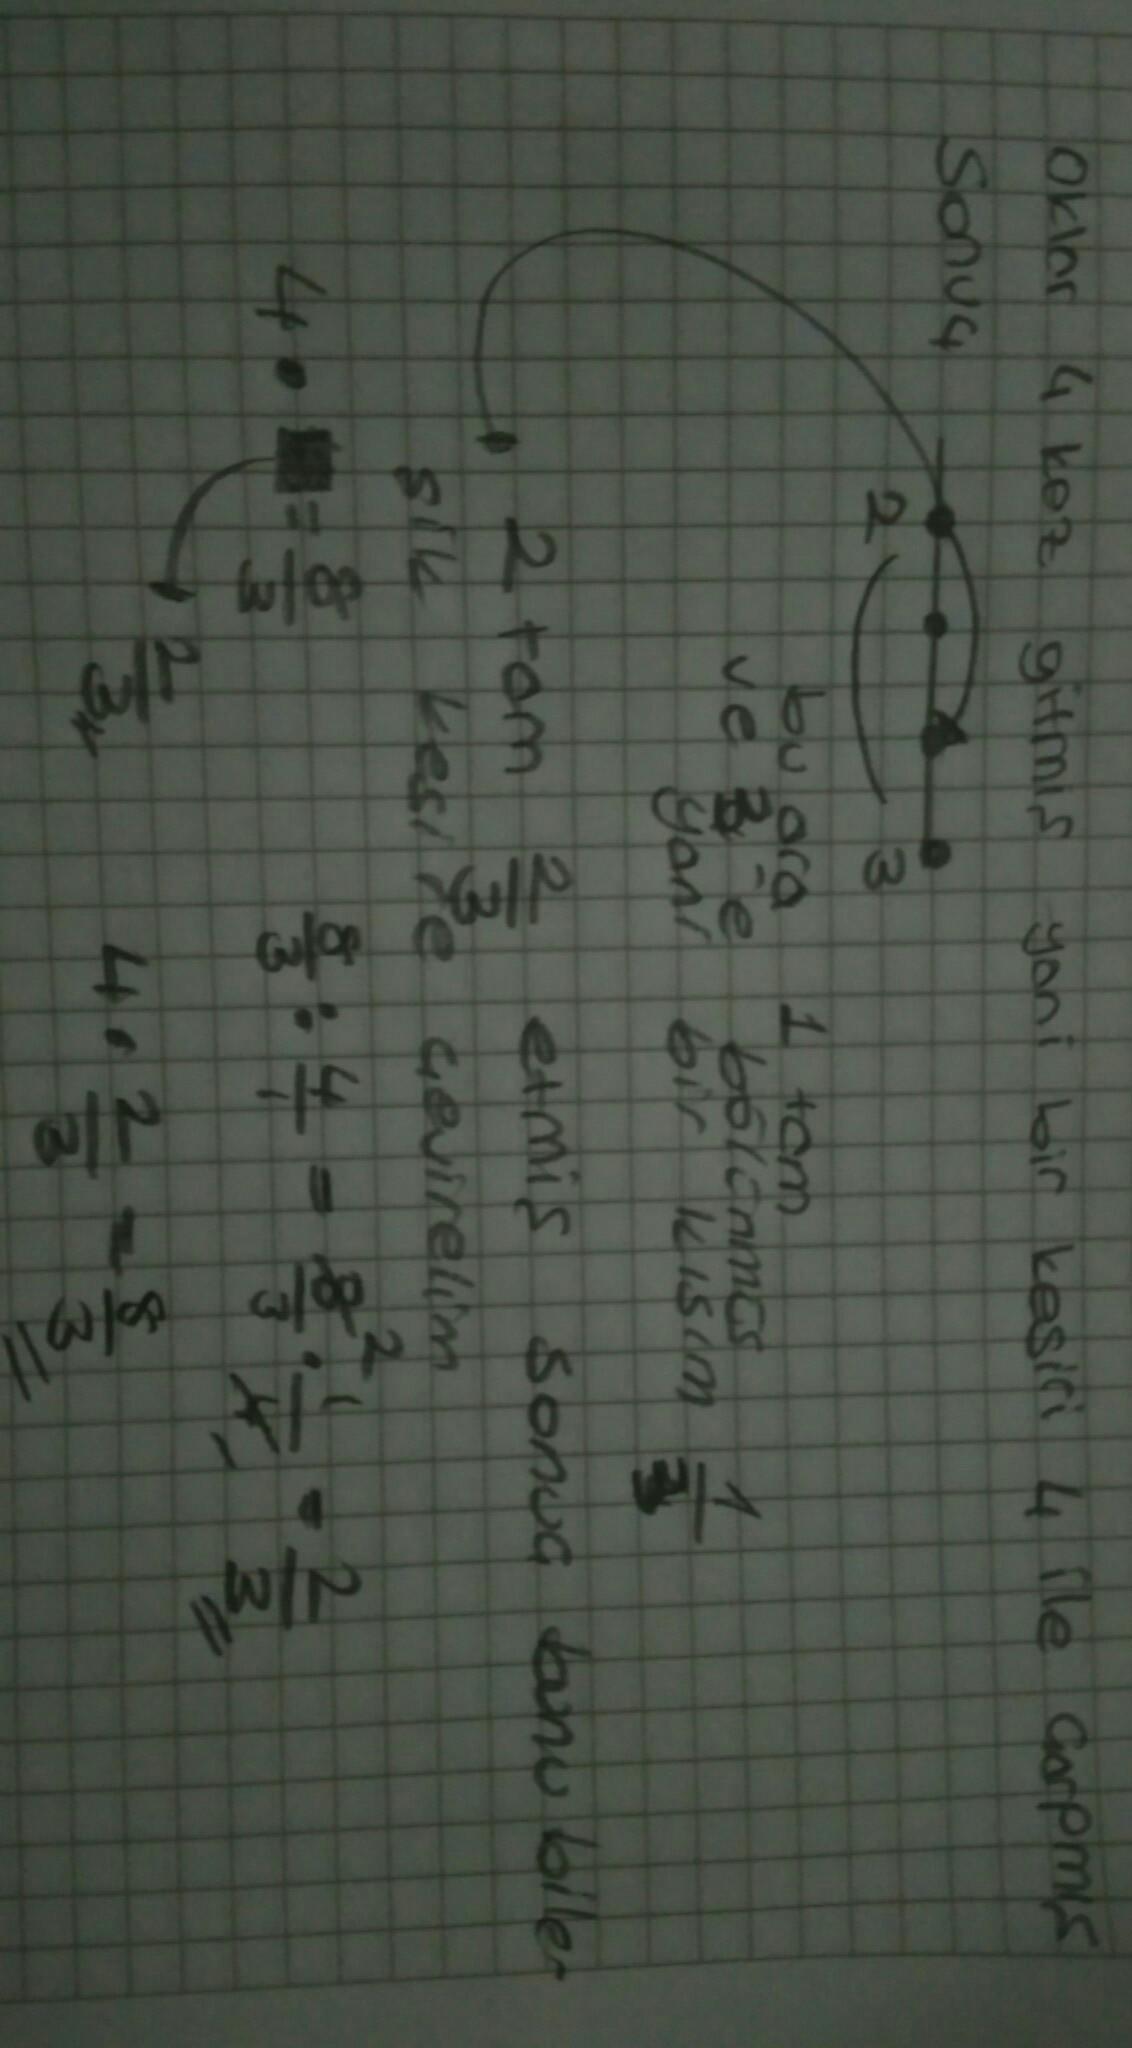 Oklar 4 kez gitmiş yani bir kesiri 4 ile çarpmış
Sonuç
2 3
bu ara 1 tam
ve 3'e bölünmüş
yani bir kısım 1/3
2 tam 2/3 etmiş sonuç bunu biler
sik kesire çevirelim
4 • ■ = 8/3
8/3 : 4/1 = 8/3 2 . 1/4 1 = 2/3
2/3
4 . 2/3 = 8/3